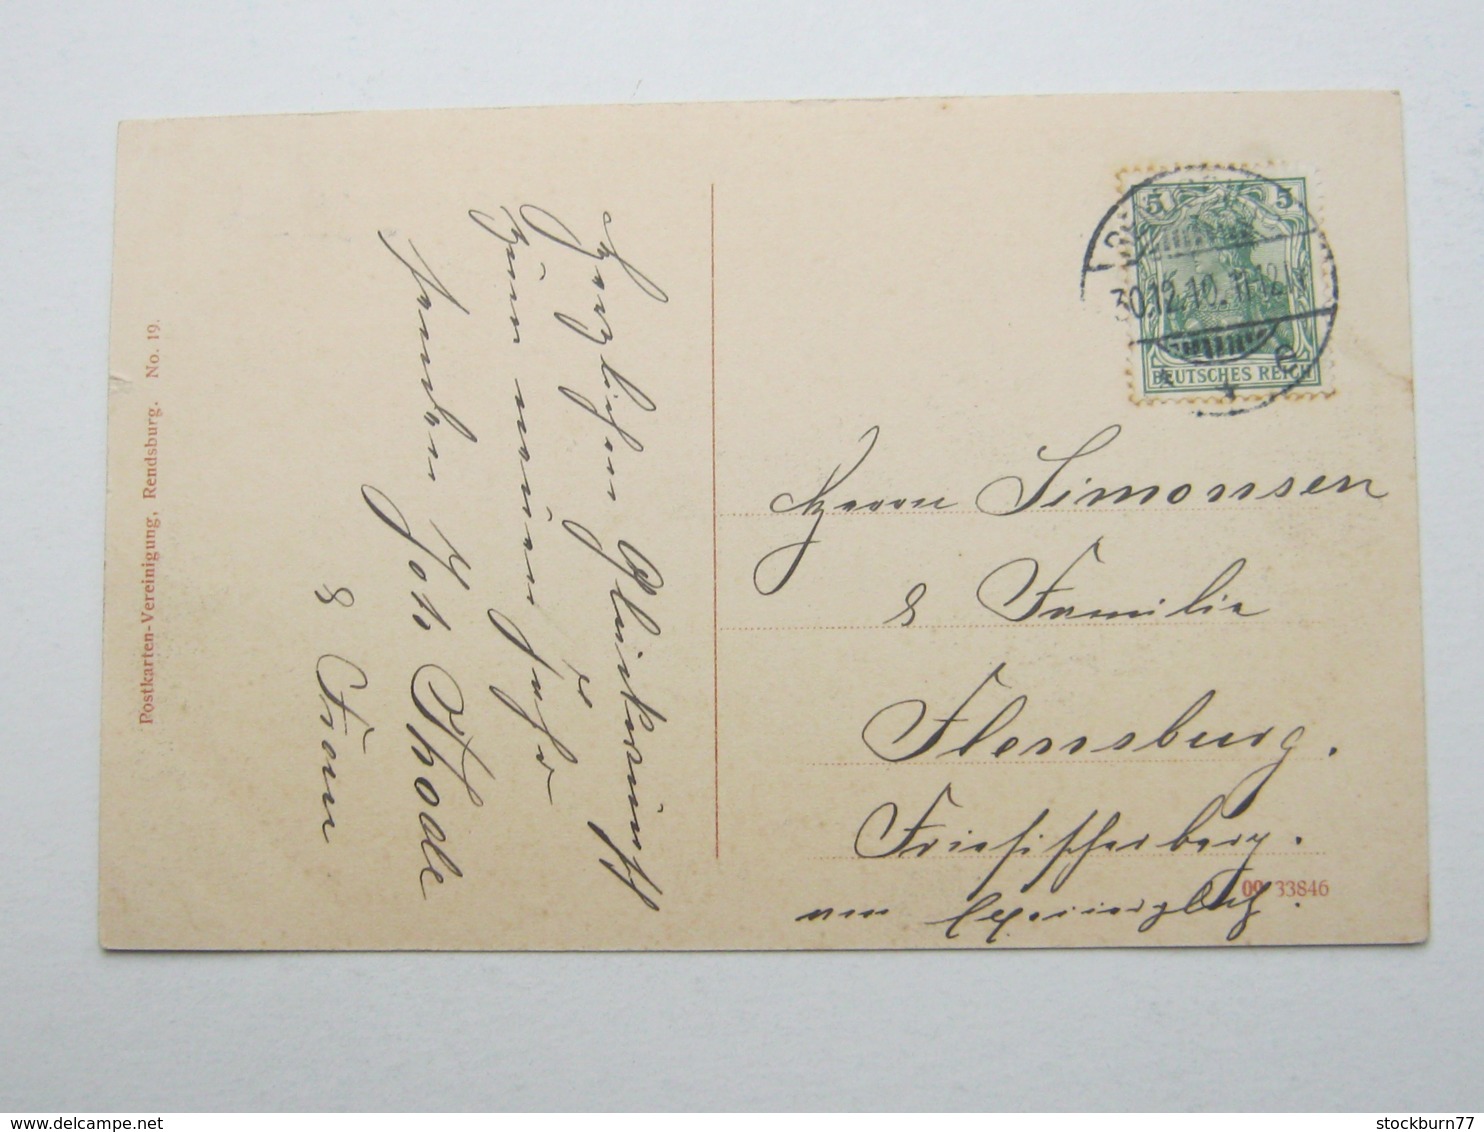 Postkarten-Vereinigung, Rendsburg. No. 19.
Herzlichen Glückwunsch
zum neuen Jahr
senden Joh. Thode
& Frau
5 5
30.12.10. 11-12
DEUTSCHES REICH
Herrn Simonsen
& Familie
Flensburg.
Friesischerberg.
09 33846
delcampe.net
stockburn77